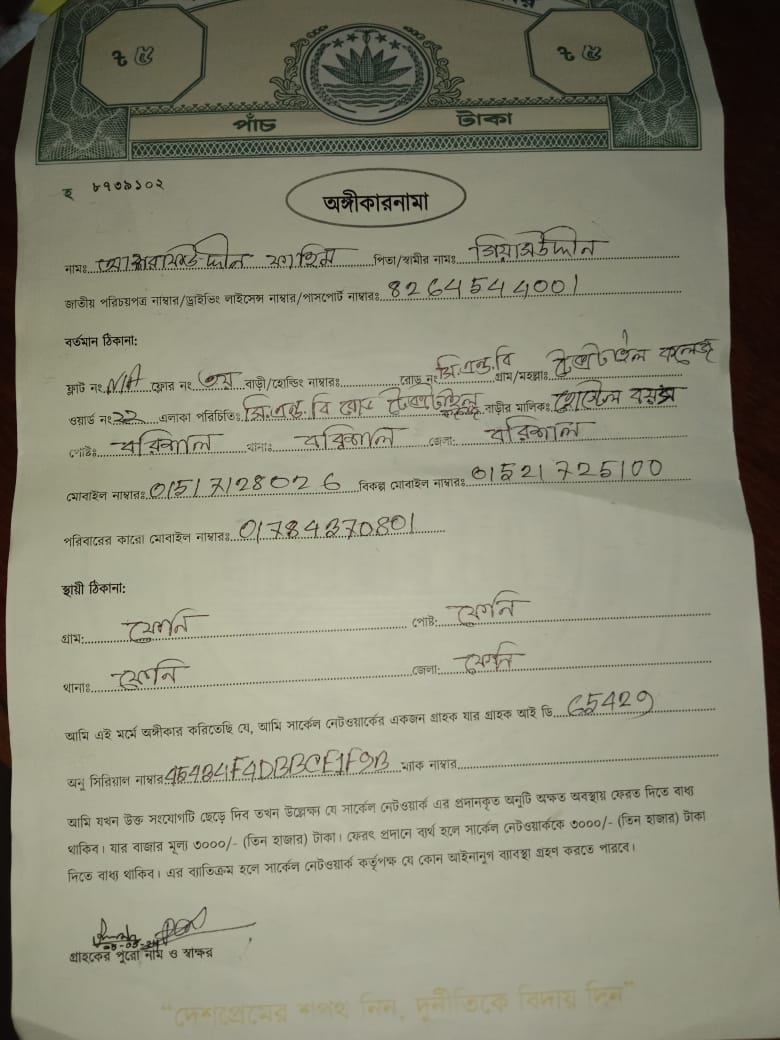 ৳ ৫ ৳ ৫
পাঁচ টাকা
হ ৮৭৩৯১০২
অঙ্গীকারনামা
নামঃ ফাহিম পিতা/স্বামীর নামঃ গিয়াসউদ্দীন
জাতীয় পরিচয়পত্র নাম্বার/ড্রাইভিং লাইসেন্স নাম্বার/পাসপোর্ট নাম্বারঃ 8264544001
বর্তমান ঠিকানা:
ফ্লাট নং N/A ফ্লোর নং ৩য় বাড়ী/হোল্ডিং নাম্বারঃ রোড নং সি.এন্ড.বি গ্রাম/মহল্লাঃ টেক্সটাইল কলেজ
ওয়ার্ড নং 22 এলাকা পরিচিতিঃ সি.এন্ড.বি রোড টেক্সটাইল কলেজ বাড়ীর মালিকঃ
পোষ্টঃ বরিশাল থানাঃ বরিশাল জেলা: বরিশাল
মোবাইল নাম্বারঃ 01517128026 বিকল্প মোবাইল নাম্বারঃ 01521725100
পরিবারের কারো মোবাইল নাম্বারঃ 01784370801
স্থায়ী ঠিকানা:
গ্রাম: ফেনি পোষ্ট: ফেনি
থানাঃ ফেনি জেলা: ফেনি
আমি এই মর্মে অঙ্গীকার করিতেছি যে, আমি সার্কেল নেটওয়ার্কের একজন গ্রাহক যার গ্রাহক আই ডি 65429
অনু সিরিয়াল নাম্বার ম্যাক নাম্বার
আমি যখন উক্ত সংযোগটি ছেড়ে দিব তখন উল্লেক্ষ্য যে সার্কেল নেটওয়ার্ক এর প্রদানকৃত অনুটি অক্ষত অবস্থায় ফেরত দিতে বাধ্য
থাকিব। যার বাজার মূল্য ৩০০০/- (তিন হাজার) টাকা। ফেরৎ প্রদানে ব্যর্থ হলে সার্কেল নেটওয়ার্ককে ৩০০০/- (তিন হাজার) টাকা
দিতে বাধ্য থাকিব। এর ব্যাতিক্রম হলে সার্কেল নেটওয়ার্ক কর্তৃপক্ষ যে কোন আইনানুগ ব্যাবস্থা গ্রহণ করতে পারবে।
গ্রাহকের পুরো নাম ও স্বাক্ষর
"দেশপ্রেমের শপথ নিন, দুর্নীতিকে বিদায় দিন"